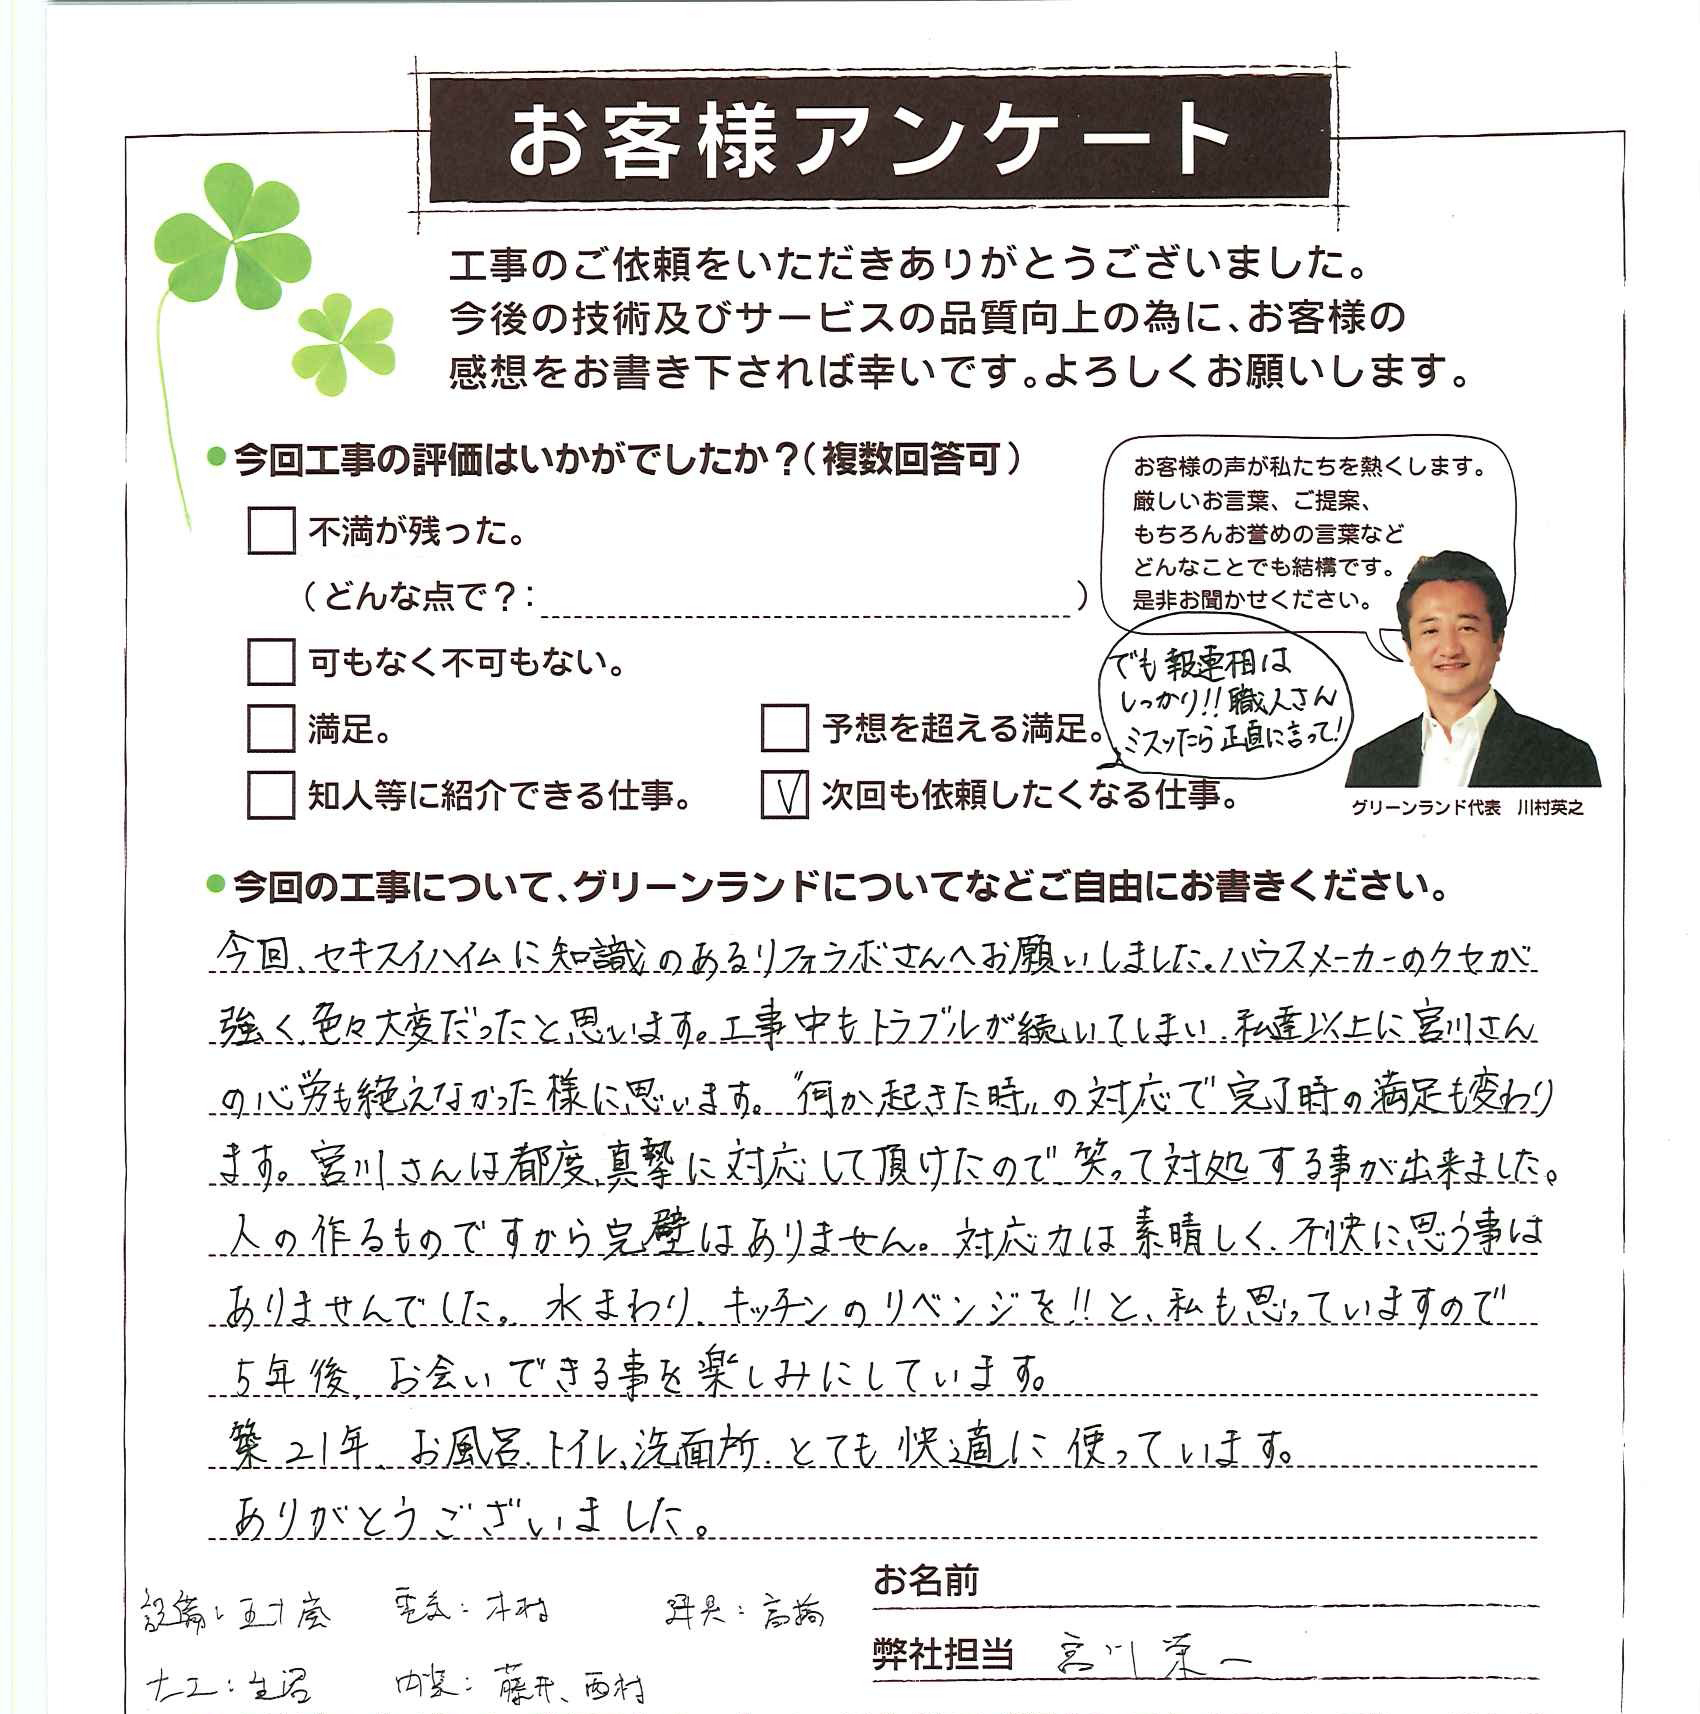 お客様アンケート
工事のご依頼をいただきありがとうございました。
今後の技術及びサービスの品質向上の為に、お客様の
感想をお書き下されば幸いです。よろしくお願いします。
●今回工事の評価はいかがでしたか？（複数回答可）
不満が残った。
（どんな点で？：　　　　　　　　）
可もなく不可もない。
満足。
予想を超える満足。
知人等に紹介できる仕事。
次回も依頼したくなる仕事。
お客様の声が私たちを熱くします。
厳しいお言葉、ご提案、
もちろんお誉めの言葉など
どんなことでも結構です。
是非お聞かせください。
でも報連相は
しっかり!!職人さん
ミスッたら正直に言って!
グリーンランド代表　川村英之
●今回の工事について、グリーンランドについてなどご自由にお書きください。
今回、セキスイハイムに知識のあるリフォラボさんへお願いしました。ハウスメーカーのクセが
強く、色々大変だったと思います。工事中もトラブルが続いてしまい、私達以上に宮川さん
の心労も絶えなかった様に思います。〝何か起きた時〟の対応で完了時の満足も変わり
ます。宮川さんは都度、真摯に対応して頂けたので、笑って対処する事が出来ました。
人の作るものですから完壁はありません。対応力は素晴しく、不快に思う事は
ありませんでした。水まわり、キッチンのリベンジを!!と、私も思っていますので
5年後、お会いできる事を楽しみにしています。
築21年、お風呂、トイレ、洗面所、とても快適に使っています。
ありがとうございました。
お名前
設備：五十嵐　電気：木村　建具：高橋
弊社担当　宮川 栄一
大工：生沼　内装：藤井、西村